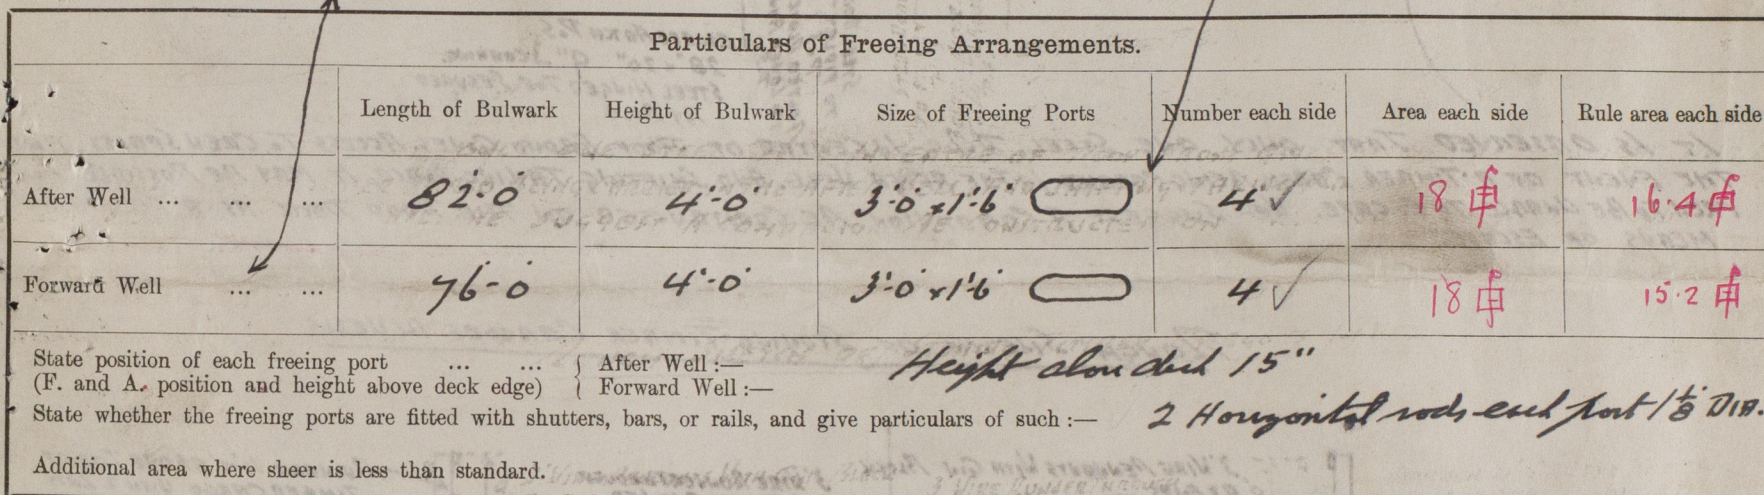 Particulars of Freeing Arrangements.
Length of Bulwark Height of Bulwark Size of Freeing Ports Number each side Area each side Rule area each side
After Well ... ... ... 82'-0" 4'-0" 3'-0" x 1'-6" 4 ✓ 18 16.4
Forward Well ... ... 76'-0" 4'-0" 3'-0" x 1'-6" 4 ✓ 18 15.2
State position of each freeing port ... ... { After Well :— Height above deck 15"
(F. and A. position and height above deck edge) { Forward Well :—
State whether the freeing ports are fitted with shutters, bars, or rails, and give particulars of such :— 2 Horizontal rods each port 1 1/8 DIA.
Additional area where sheer is less than standard.